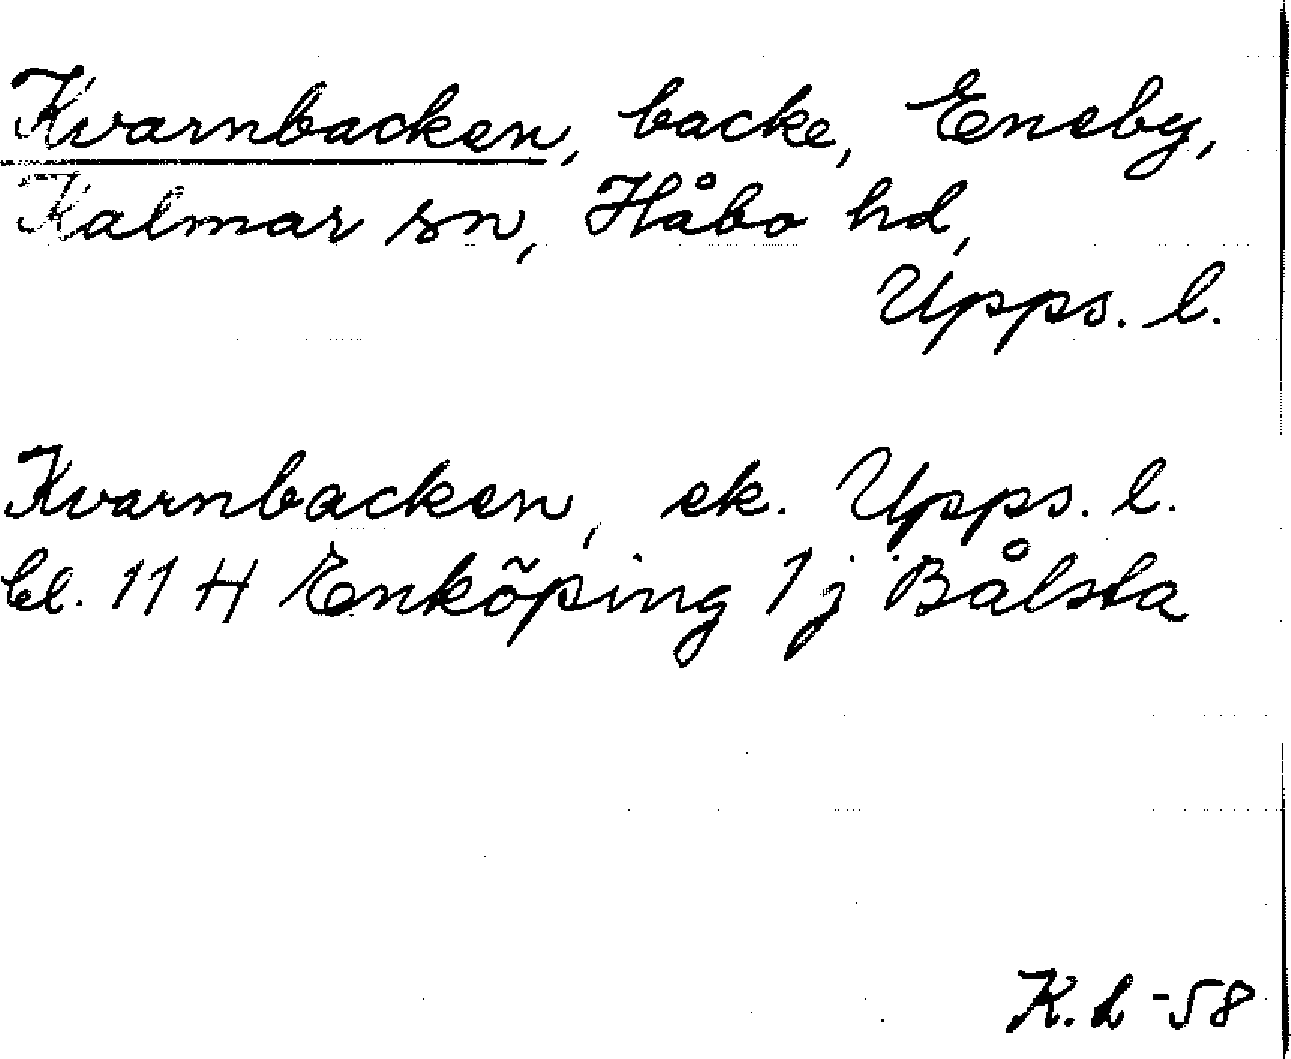 Kvarnbacken, backe, Eneby,
Kalmar sn, Håbo hd,
Upps. l.
Kvarnbacken, ek. Upps. l.
bl. 11 H Enköping 1 j Bålsta
K. L -58